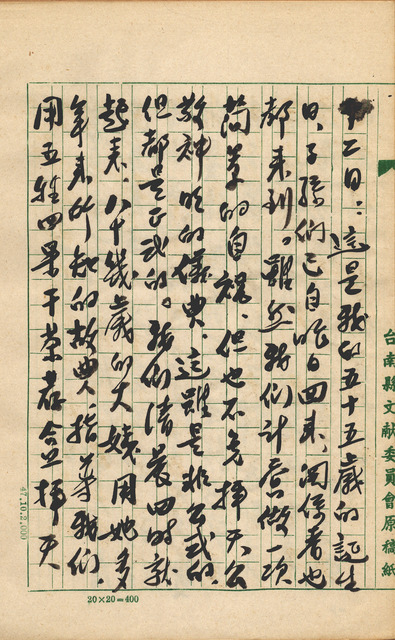 十二日：這是我的五十五歲的誕生
日、子孫們已自昨日回來、関係者也
都來到。雖然我們計劃做一項
簡單的自祝、但也不免拜天公
敬神明的儀典、這雖是非公式的、
但都是正式的。我們清晨四時就
起來、八十幾歲的大姨用她多
年來所知的故典、指導我們、
用五牲四果干菜春盒拜天
台南縣文献委員會原稿紙
47.10.2,000
20×20=400